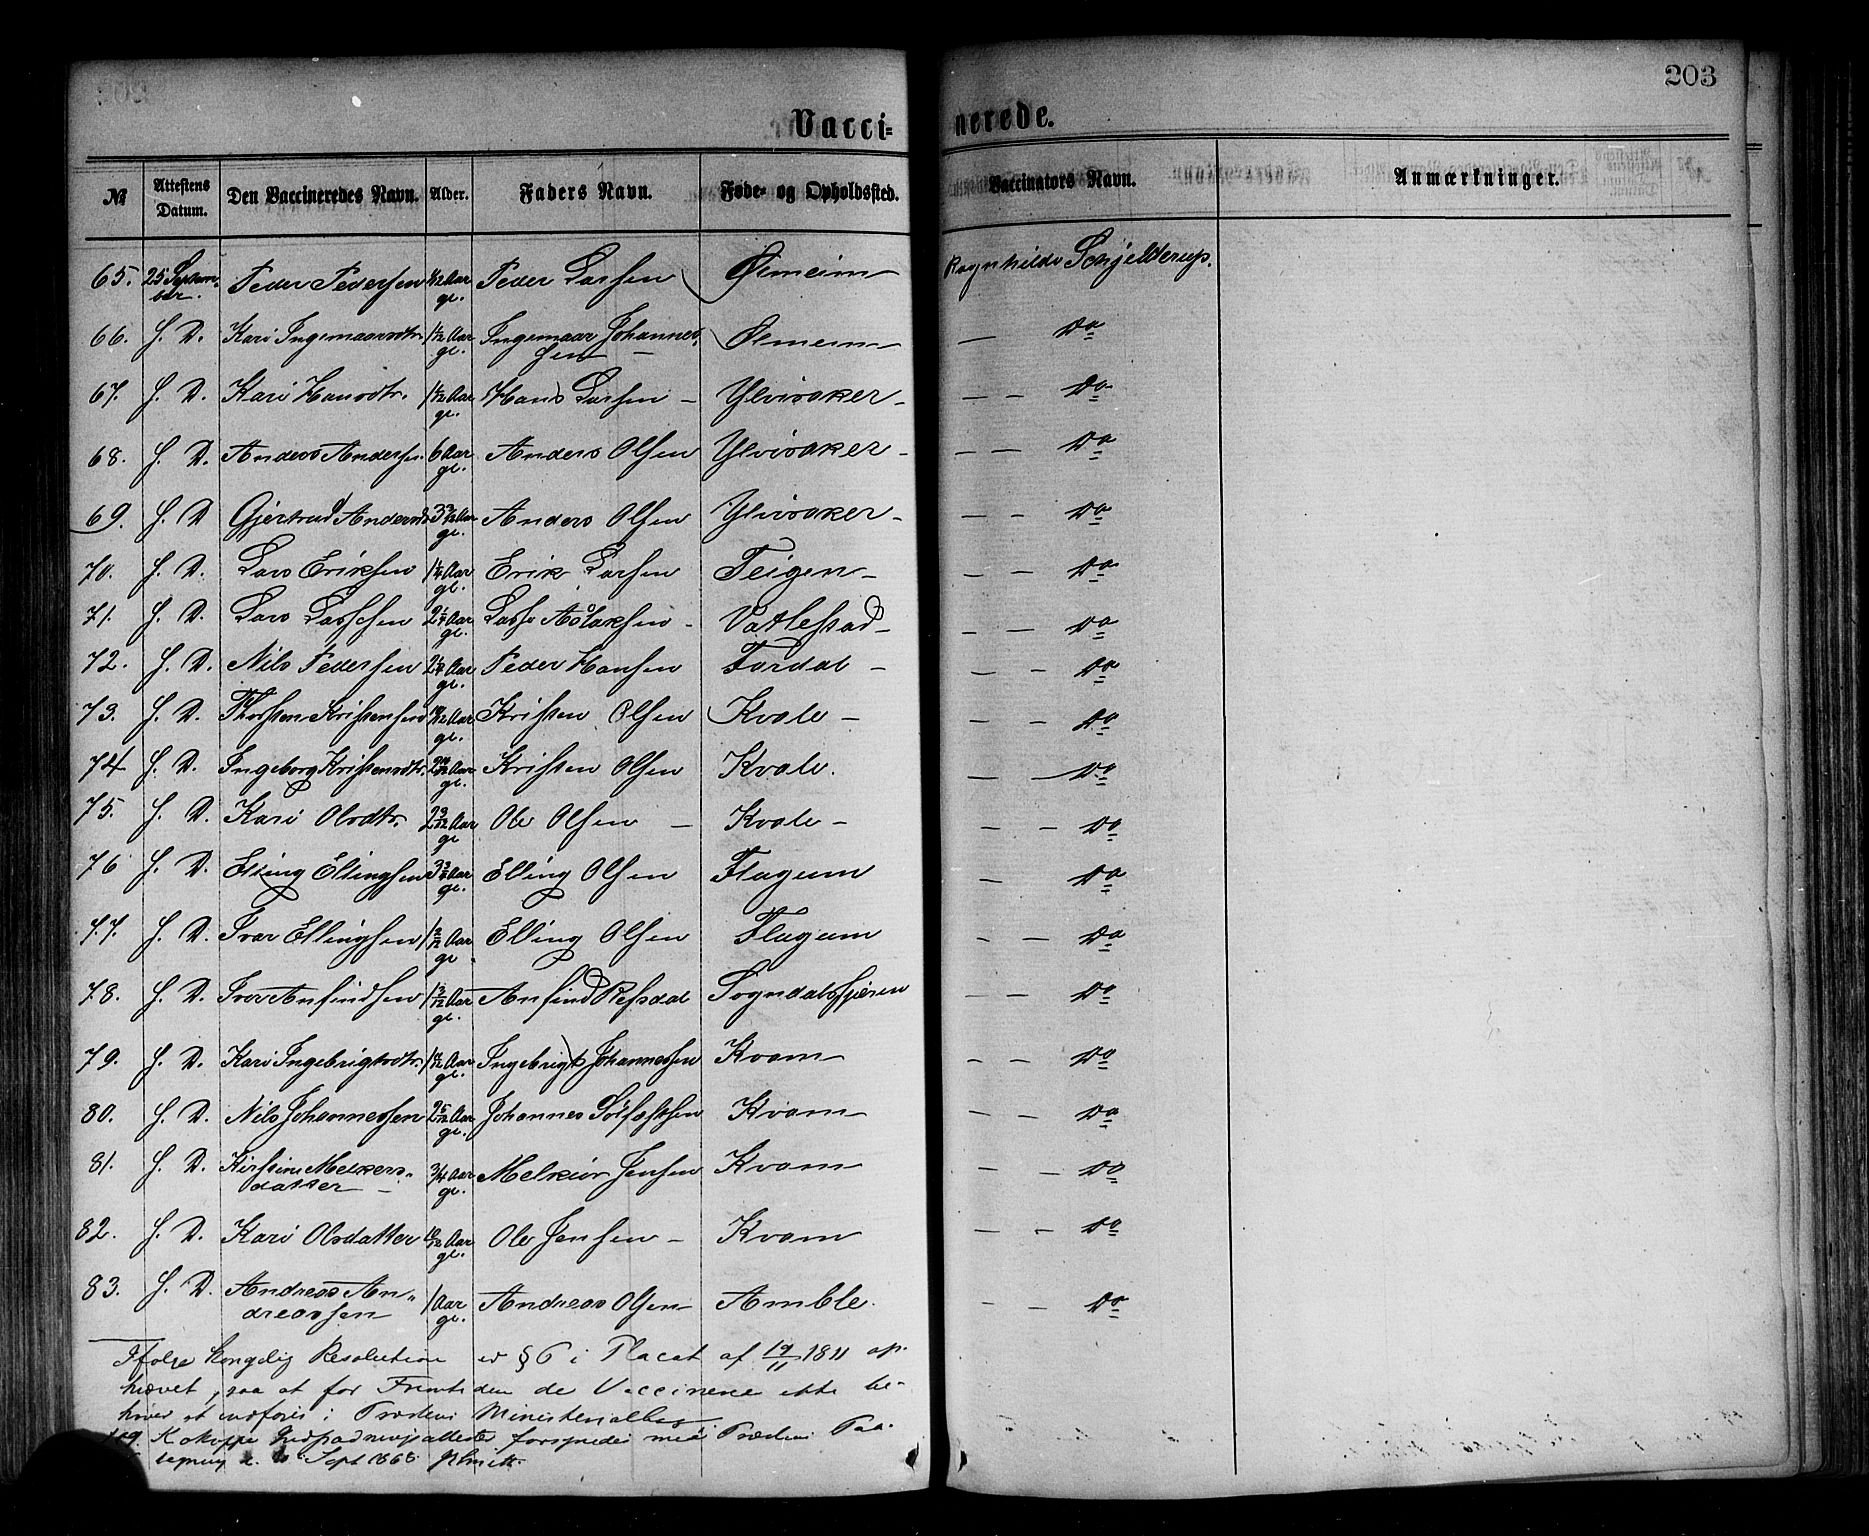 203
Vacci=
nerede.
№ Attestens Datum. Den Vaccineredes Navn. Alder. Faders Navn. Føde- og Opholdssted. Vaccinators Navn. Anmærkninger.
65. 25 September. Peder Pedersen Aar gl. Peder Larsen Ølmeim Ragnhilde Schjelderup.
66. S. D. Kari Ingemaarsdtr. Aar gl. Ingemaar Johannessen — Ølmeim — Do
67. S. D. Kari Hansdtr. Aar gl. Hans Larsen — Ylvisaker — — — Do
68. S. D. Anders Andersen. 6 Aar gl. Anders Olsen Ylvisaker — — — Do
69. S. D Gjertrud Andersd 3 Aar gl. Anders Olsen Ylvisaker — — — Do
70. S. D. Lars Eriksen 1¼ Aar gl. Erik Larsen Teigen — — — Do
71. S. D. Lars Lassesen 2¼ Aar gl. Lasse Aslaksen — Vatlestad — — — Do
72. S. D. Nils Pedersen Aar gl. Peder Hansen Fardal — — — Do
73. S. D. Thorsten Kristensen Aar gl. Kristen Olsen Kvale — — — Do
74 S. D. Ingeborg Kristensdtr. Aar gl. Kristen Olsen Kvale. — — Do
75. S. D. Kari Olsdtr. 2 9/12 Aar gl Ole Olsen — Kvale — — — Do
76 S. D. Elling Ellingsen Aar gl. Elling Olsen Flugum — Do
77. S. D. Ivar Ellingsen 1 2/12 Aar gl. Elling Olsen Flugum — — Do
78. S. D. Iver Anfindsen 1 3/12 Aar gl. Anfind Refsdal Sogndalsfjæren — — Do
79. S. D. Kari Ingebrigtsdtr. Aar gl. Ingebrigt Johannessen Kvam — — Do
80. S. D. Nils Johannessen 2 5/12 Aar gl. Johannes Sjursen Kvam — — Do
81. S. D. Kirstine Melkersdatter — 3/4 Aar gl. Melkior Jensen Kvam — — Do
82. S. D. Kari Olsdatter Aar gl. Ole Jensen — Kvam — — Do
83. S. D. Andreas Andreassen 1 Aar gl. Andreas Olsen Amble. — — Do
Ifølge kongelig Resolution er § 6 i Placat af 1811 op-
hævet, saa at for Fremtiden de Vaccinerede ikke be-
høver at indføres i Præstens Ministerialbog
Kokoppe forsynede med Præstens Paa-
tegning Sept 1868